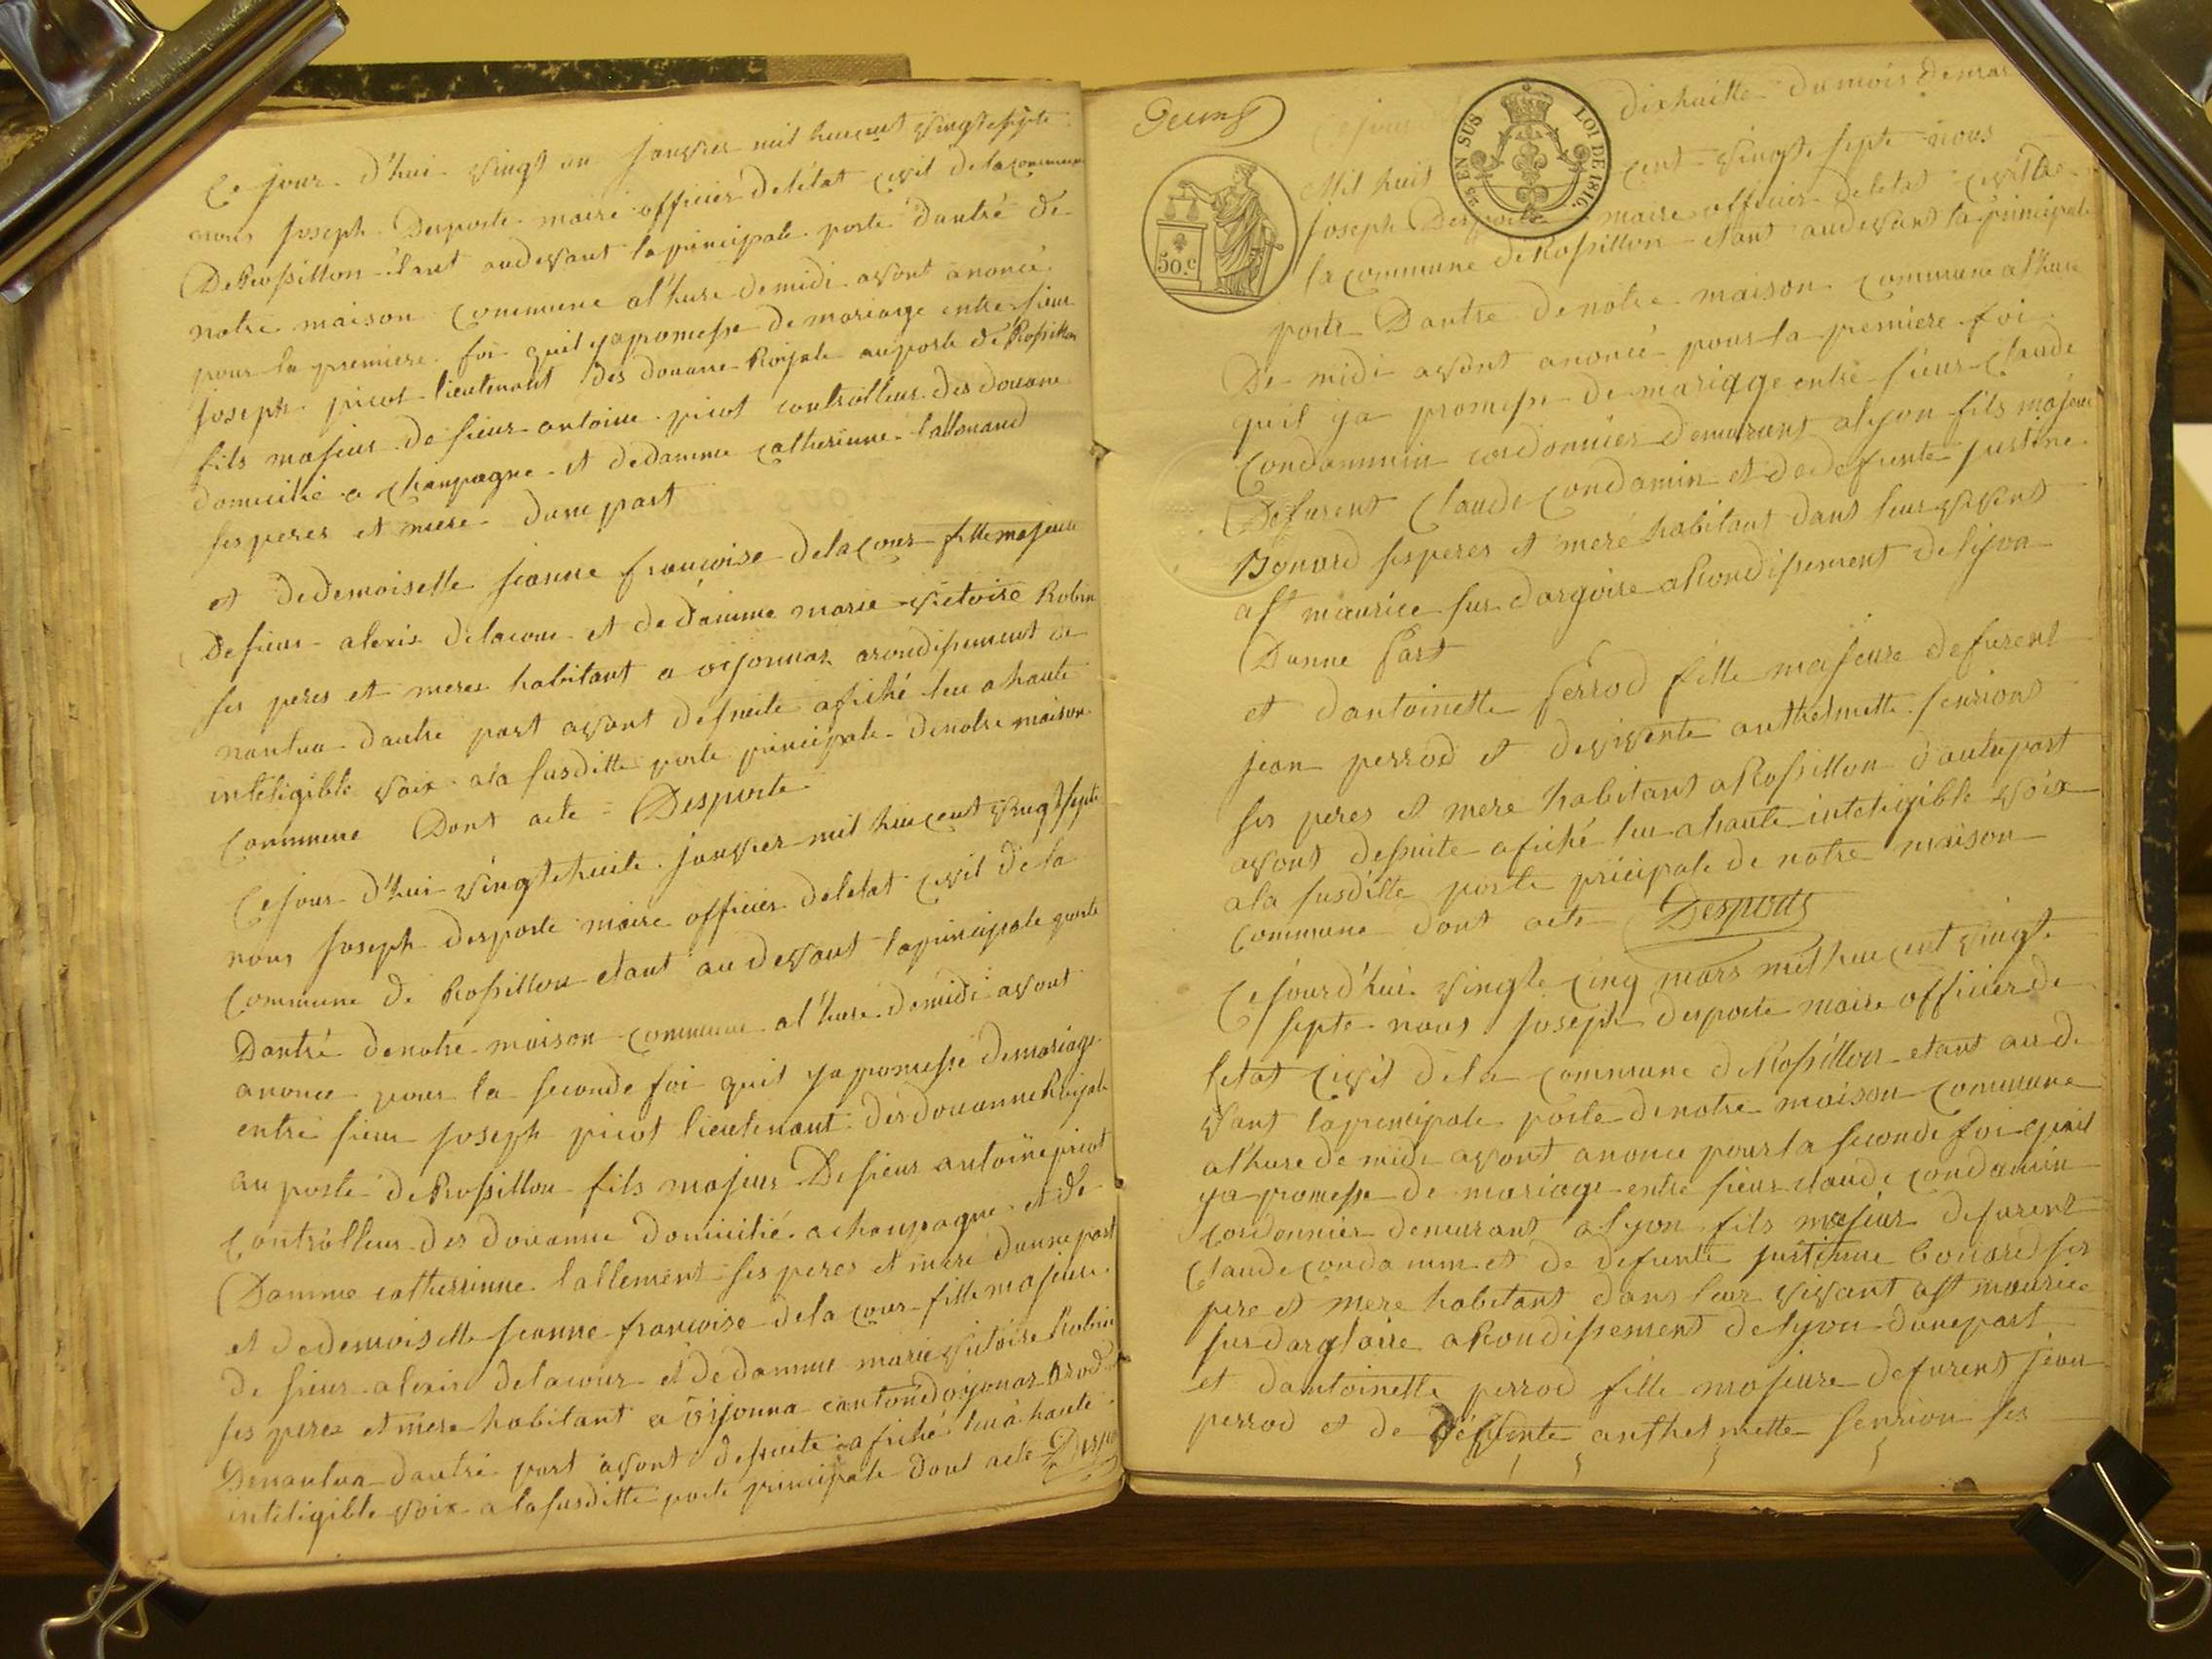 Ce jour d'hui vingt un janvier mil huit cent vingt septe
nous joseph Desporte maire officier de l'état civil de la commune
De Rossillon étant audevant la principale porte d'antré de
notre maison commune al'hure de midi avont anoncé
pour la premiere foi quil ya promesse de mariage entre sieur
joseph picot lieutenant des douane Royale au poste de Rossillon
fils majeur de sieur antoine picot controlleur des douane
domicilié a Champagne et de damme catherinne lallemand
ses peres et mere dune part
et de demoiselle jeanne françoise delacour fille majeure
de sieur alexis delacour et de damme marie victoire Robin
ses peres et meres habitant a oijonnax arondissement de
nantua dautre part avont desuite afiché leu a haute
inteligible voix ala susditte porte principale de notre maison
commune Dont acte = Desporte
Ce jour d'hui vingt huite janvier mil huit cent vingt septe
nous joseph desporte maire officier de l'etat civil de la
commune de Rossillon etant au devant la principale porte
Dantré de notre maison commune al'hure de midi avont
anoncé pour la seconde foi quil ya promesse de mariage
entre sieur joseph picot lieutenant des douanne Roijale
au poste de Rossillon fils majeur De sieur antoine picot
controlleur des douanne domicilié a champagne et de
Damme catherinne lallement ses peres et mere dunne part
et de demoiselle jeanne francoise dela cour fille majeure
de sieur alexis delacour et de damme marie victoire Robin
ses peres et mere habitant a oijonna canton doijonax arod
De nantua dautre part avont desuite afiché leu à haute
inteligible voix a la susditte porte principale dont acte = Despo
Dixhuitte du mois de mar
2es EN SUS LOI DE 1816.
50.c
Mil huit cent vingt septe nous
joseph Desporte maire officier de letat civil de
la commune de Rossillon etant audevant la principale
porte Dantre de notre maison commune al'hure
De midi avont anoncé pour la premiere foi
quil ya promesse de mariage entre sieur claude
condammin cordonnier demurant alyon fils majeur
Defurent Claude condamin et de defunte justine
Bonard ses peres et meré habitant dans leur vivent
a st maurice sur dargoire aRondissement de lyon
Dunne part
et dantoinette perrod fille majeure defurent
jean perrod et devivente anthelmette senriont
ses peres et mere habitant aRossillon dautre part
avont desuite afiché leu ahaute inteligible voix
ala susditte porte pricipale de notre maison
commune dont acte Desporte
Cejourd'hui vingte cinq mars mil huit cent vingt
septe nous joseph desporte maire officier de
letat civil dela commune de Rossillon etant au de
vant la principale porte de notre maison commune
al'hure de midi avont anonce pour la seconde foi quil
ya promesse de mariage entre sieur claude condamin
cordonnier demurant alyon fils majeur defurent
claude condamin et de defunte justinne bonard ses
pere et mere habitant dans leur vivant a st maurice
sur dargloire aRondissement de lyon dunepart
et dantoinette perrod fille majeure defurent jean
perrod et de vivente anthelmette senrion ses